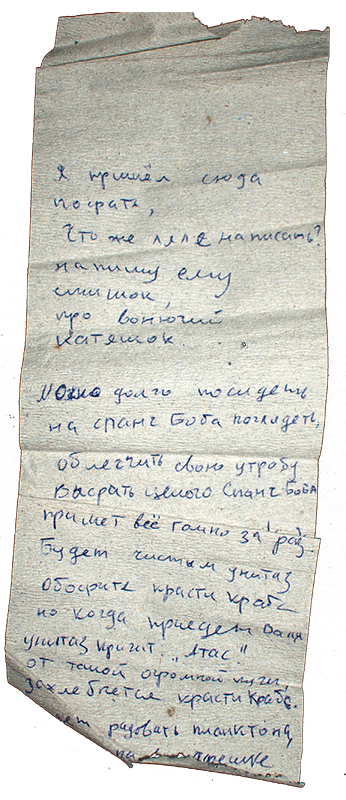 Я пришёл сюда
посрать,
Что же ляле написать?
напишу ему
стишок,
про вонючий
катяшок.
Можно долго посидеть
на спанг Боба поглядеть,
облегчить свою утробу
высрать целого Спанг Боба
примет всё гамно за 1 раз.
Будет чистым унитаз
обосрите красти краба
но когда приедет
унитаз кричит: „Атас!"
от такой огромной кучи,
захлебнется красти Краб.
ет радовать планктона,
на